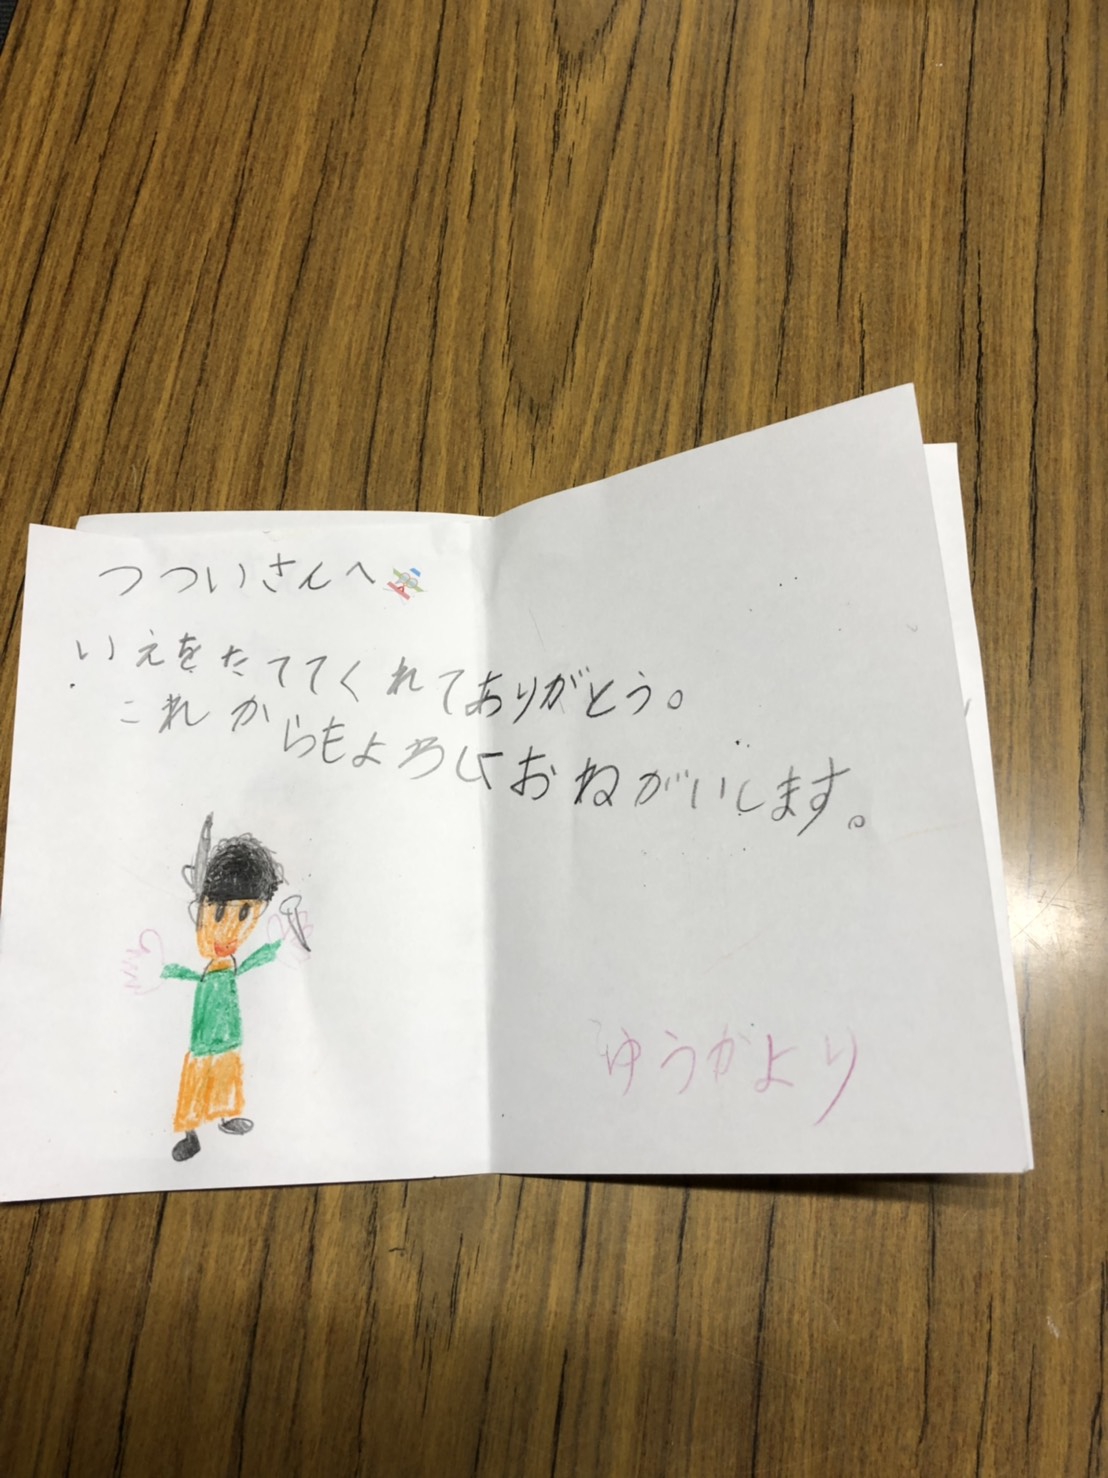 つついさんへ
いえをたててくれてありがとう。
これからもよろしくおねがいします。
ゆうかより